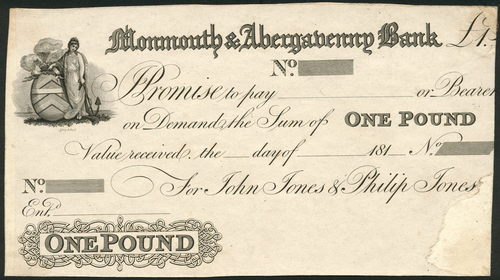 Monmouth & Abergavenny Bank £1.
No.
I Promise to pay ___ or Bearer
on Demand the Sum of ONE POUND
Value received the ___ day of ___ 181_ No.
No. For John Jones & Philip Jones
Entd.
ONE POUND